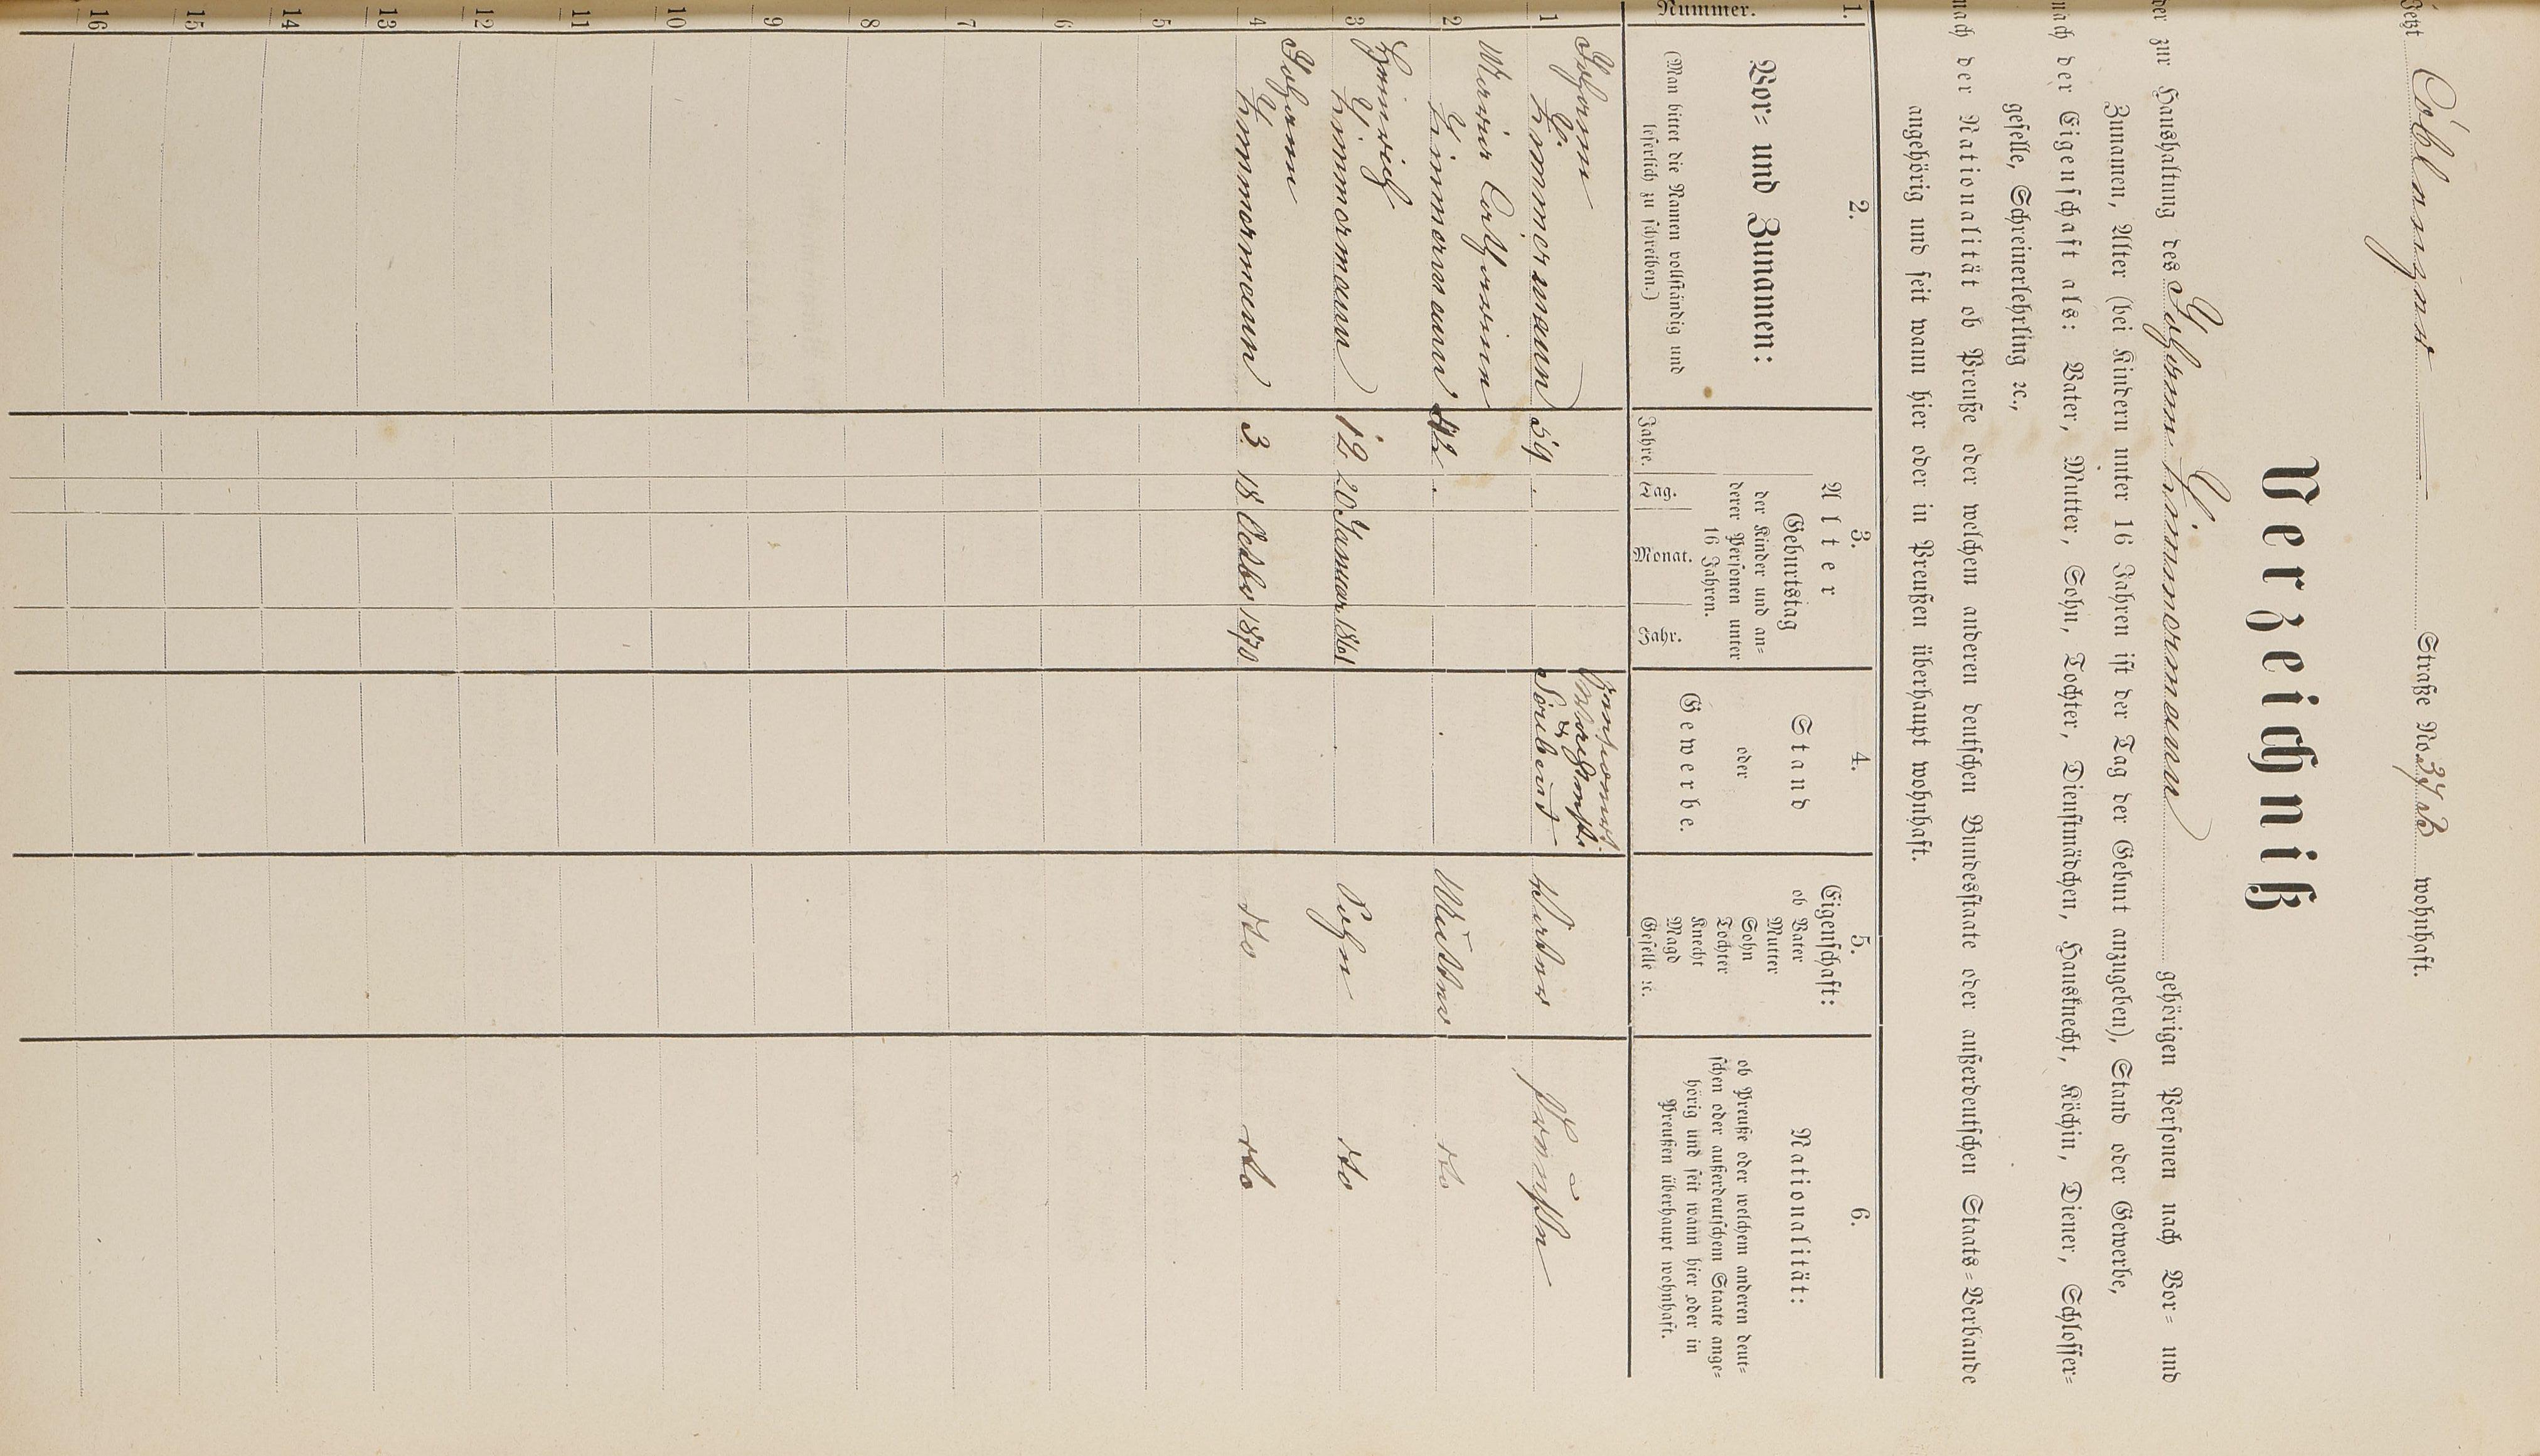 Jetzt Coblenzer Straße No 37 B wohnhaft.
Verzeichniß
der zur Haushaltung des Johann Zimmermann gehörigen Personen nach Vor- und
Zunamen, Alter (bei Kindern unter 16 Jahren ist der Tag der Geburt anzugeben), Stand oder Gewerbe,
nach der Eigenschaft als: Vater, Mutter, Sohn, Tochter, Dienstmädchen, Hausknecht, Köchin, Diener, Schlosser-
geselle, Schreinerlehrling ꝛc.,
nach der Nationalität ob Preuße oder welchem anderen deutschen Bundesstaate oder außerdeutschen Staats-Verbande
angehörig und seit wann hier oder in Preußen überhaupt wohnhaft.
1. 2. 3. 4. 5. 6.
Nummer.
Vor- und Zunamen:
(Man bittet die Namen vollständig und
leserlich zu schreiben.)
Alter
Geburtstag
der Kinder und an-
derer Personen unter
16 Jahren.
Jahre. Tag. Monat. Jahr.
Stand
oder
Gewerbe.
Eigenschaft:
ob Vater
Mutter
Sohn
Tochter
Knecht
Magd
Geselle ꝛc.
Nationalität:
ob Preuße oder welchem anderen deut-
schen oder außerdeutschem Staate ange-
hörig und seit wann hier oder in
Preußen überhaupt wohnhaft.
Johann
1 Zimmermann 59 Vater Preuße
Maria Catharina
2 Zimmermann 42 Mutter dto
Heinrich
3 Zimmermann 12 20 Januar 1861 Sohn dto
Johann
4 Zimmermann 3 18 Octbr 1870 dto dto
5
6
7
8
9
10
11
12
13
14
15
16